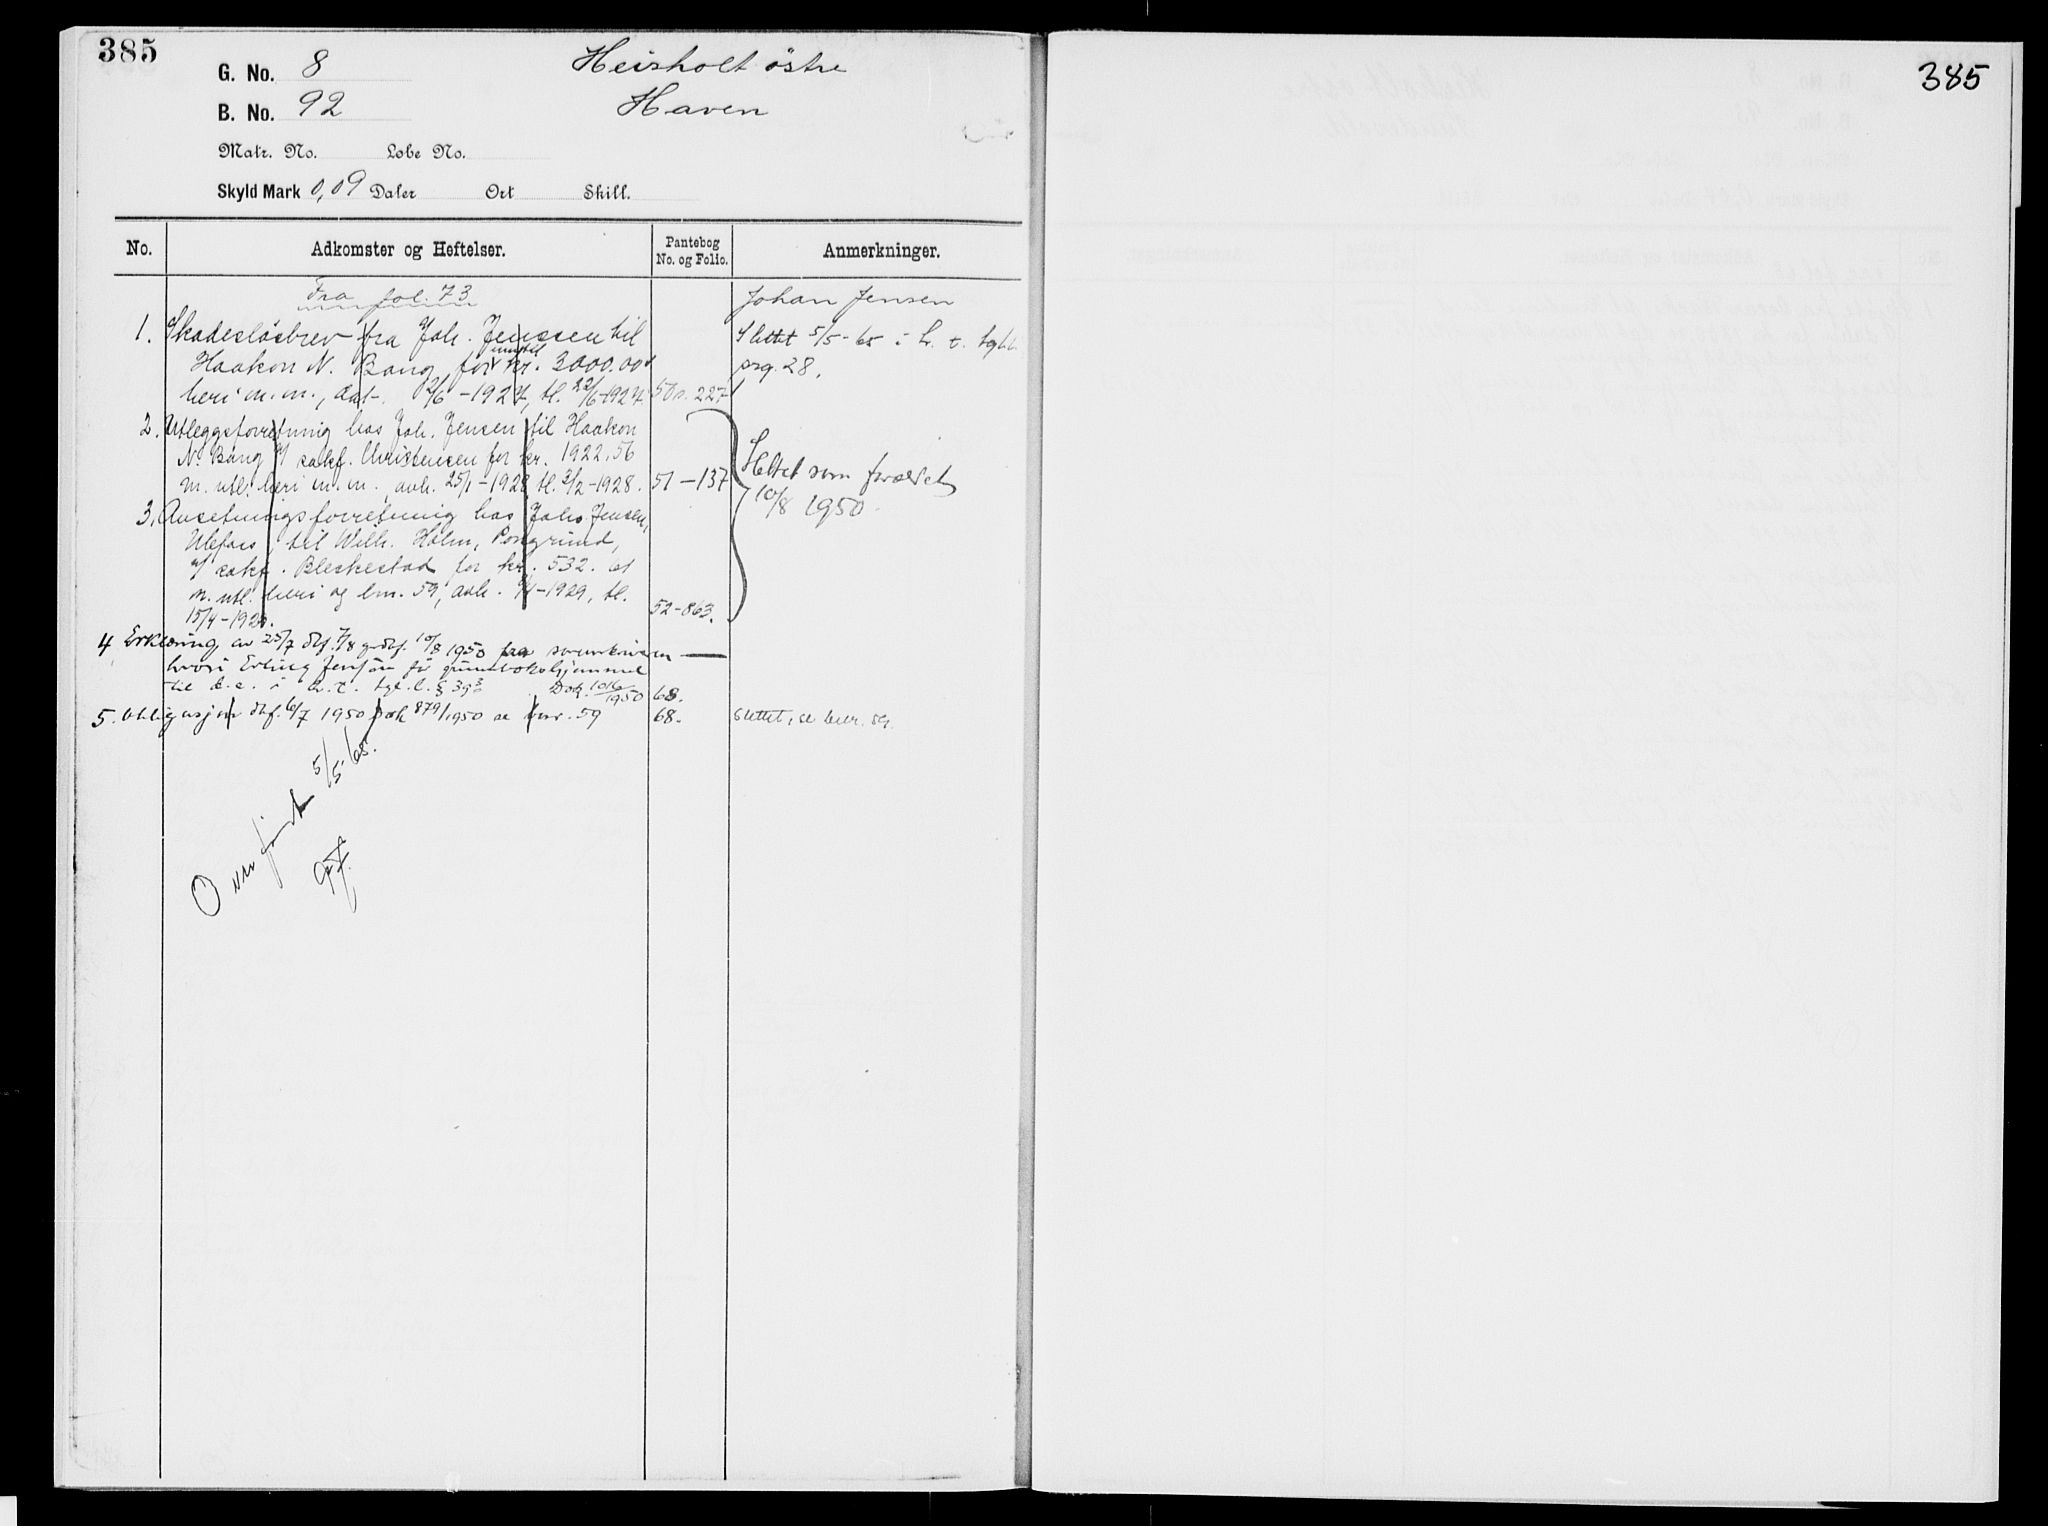 385
G. No. 8 Heisholt östre
B. No. 92 Haven
Matr. No. Lobe No.
Skyld Mark 0,09 Daler Ort Skill.
No. Adkomster og Heftelser. Pantebog No. og Folio. Anmerkninger.
Fra fol. 73 Johan Jensen
1. Skadeslösbrev fra Joh. Jenssen til Slettet 5/5-65 i h. t. tgl.l.
Haakon N. Bang for inntil kr. 3000.00 prg. 28.
heri m.m., dat. 2/6-1927, tl. 22/6-1927. 50 s. 227
2. Utleggsforretning hos Joh. Jensen til Haakon
N. Bang v/ sakf. Christensen for kr. 1922.56
m. utl. heri m.m. avh. 25/1-1928 tl. 3/2-1928. 51-137 Slettet som foreldet
3. Ansetningsforretning hos Johs. Jensen, 10/8 1950.
Ulefoss, til Wilh. Holm, Porsgrund,
v/ sakf. Bleskestad for kr. 532.61
m. utl. heri og bnr. 59, avh. 9/4-1929, tl.
15/4-1929. 52-863.
4 Erklæring av 25/7 dbf. 10/8 1950 fra sorenskriveren
hvori Erling Jensen får grunnbokshjemmel
til d.e. i h.t. tgl.l. § 39³ Dok. 1016/1950 68.
5. Obligasjon dbf. 6/7 1950 Dok 879/1950 se bnr. 59 68. Slettet, se bnr. 59.
Overført 5/5 65.
385